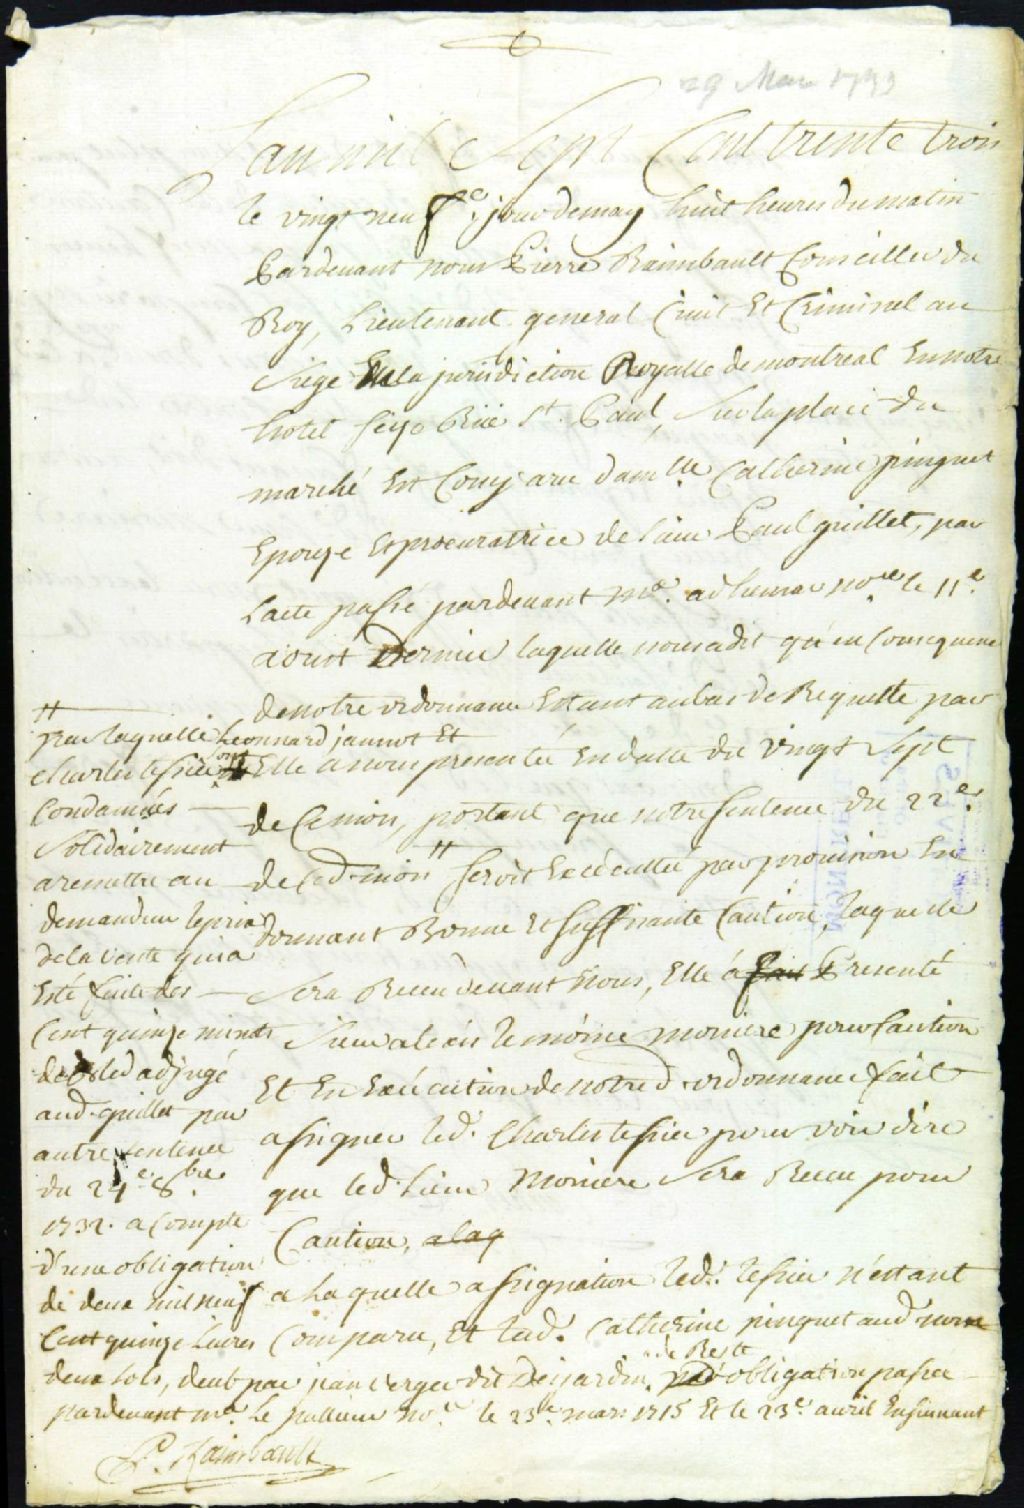 29 May 1733
Lan mil Sept Cent trente trois
le vingt neuf.e jour de may huit heures du matin
Pardevant nous Pierre Raimbault Conseiller du
Roy, Lieutenant general Civil Et Criminel au
Siege de la jurisdiction Royalle de montreal En notre
hotel seize Rüe St. Paul, Sur la place du
marché Est Comparu dam.lle Catherine pinguet
Epouze Et procuratrice de Sieur Paul guillet, par
Lacte passé pardevant me. adhemar no.re le 11e.
aoust Dernier laquelle nous a dit qu'en Consequence
de notre ordonnance Estant au bas de Requette par
Elle a nous presentée En datte du vingt Sept
de Ce mois, portant que notre Sentence du 22e.
de Ced. mois # seroit Executtée par provision En
donnant Bonne Et suffisante Caution, laquelle
Sera Receu devant Nous, Elle a fait Presenté
Sieur alexis lemoine moniere pour Caution
Et En Execution de notred. ordonnance fait
assigner led. Charles tessier pour voir dire
que led. Sieur Moniere Sera Receu pour
Caution, alaq
a Laquelle assignation led. tessier n'estant
Comparu, Et lad. Catherine pinguet aud. nom
# par laquelle Leonnard jaunot Et
Charles tessier ont
Condamnés
Solidairement
a remettre au
demandeur le prix
de la vente qui a
Esté faite des
Cent quinze minots
de bled adjugé
aud. guillet par
autre Sentence
du 24e. 8bre.
1732. a Compte
d'une obligation
de deux mil neuf
Cent quinze Livres
deux sols, deub par jean verger dit Desjardin, de Reste par obligation passée
pardevant me. Le pallieur no.re le 23e mars 1715 Et le 23e avril Ensuivant
P. Raimbault